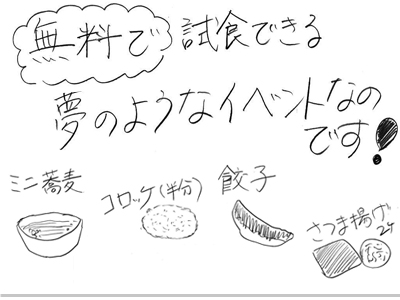 無料で試食できる
夢のようなイベントなの
です!
ミニ蕎麦
コロッケ(半分)
餃子
さつま揚げ
2ケ